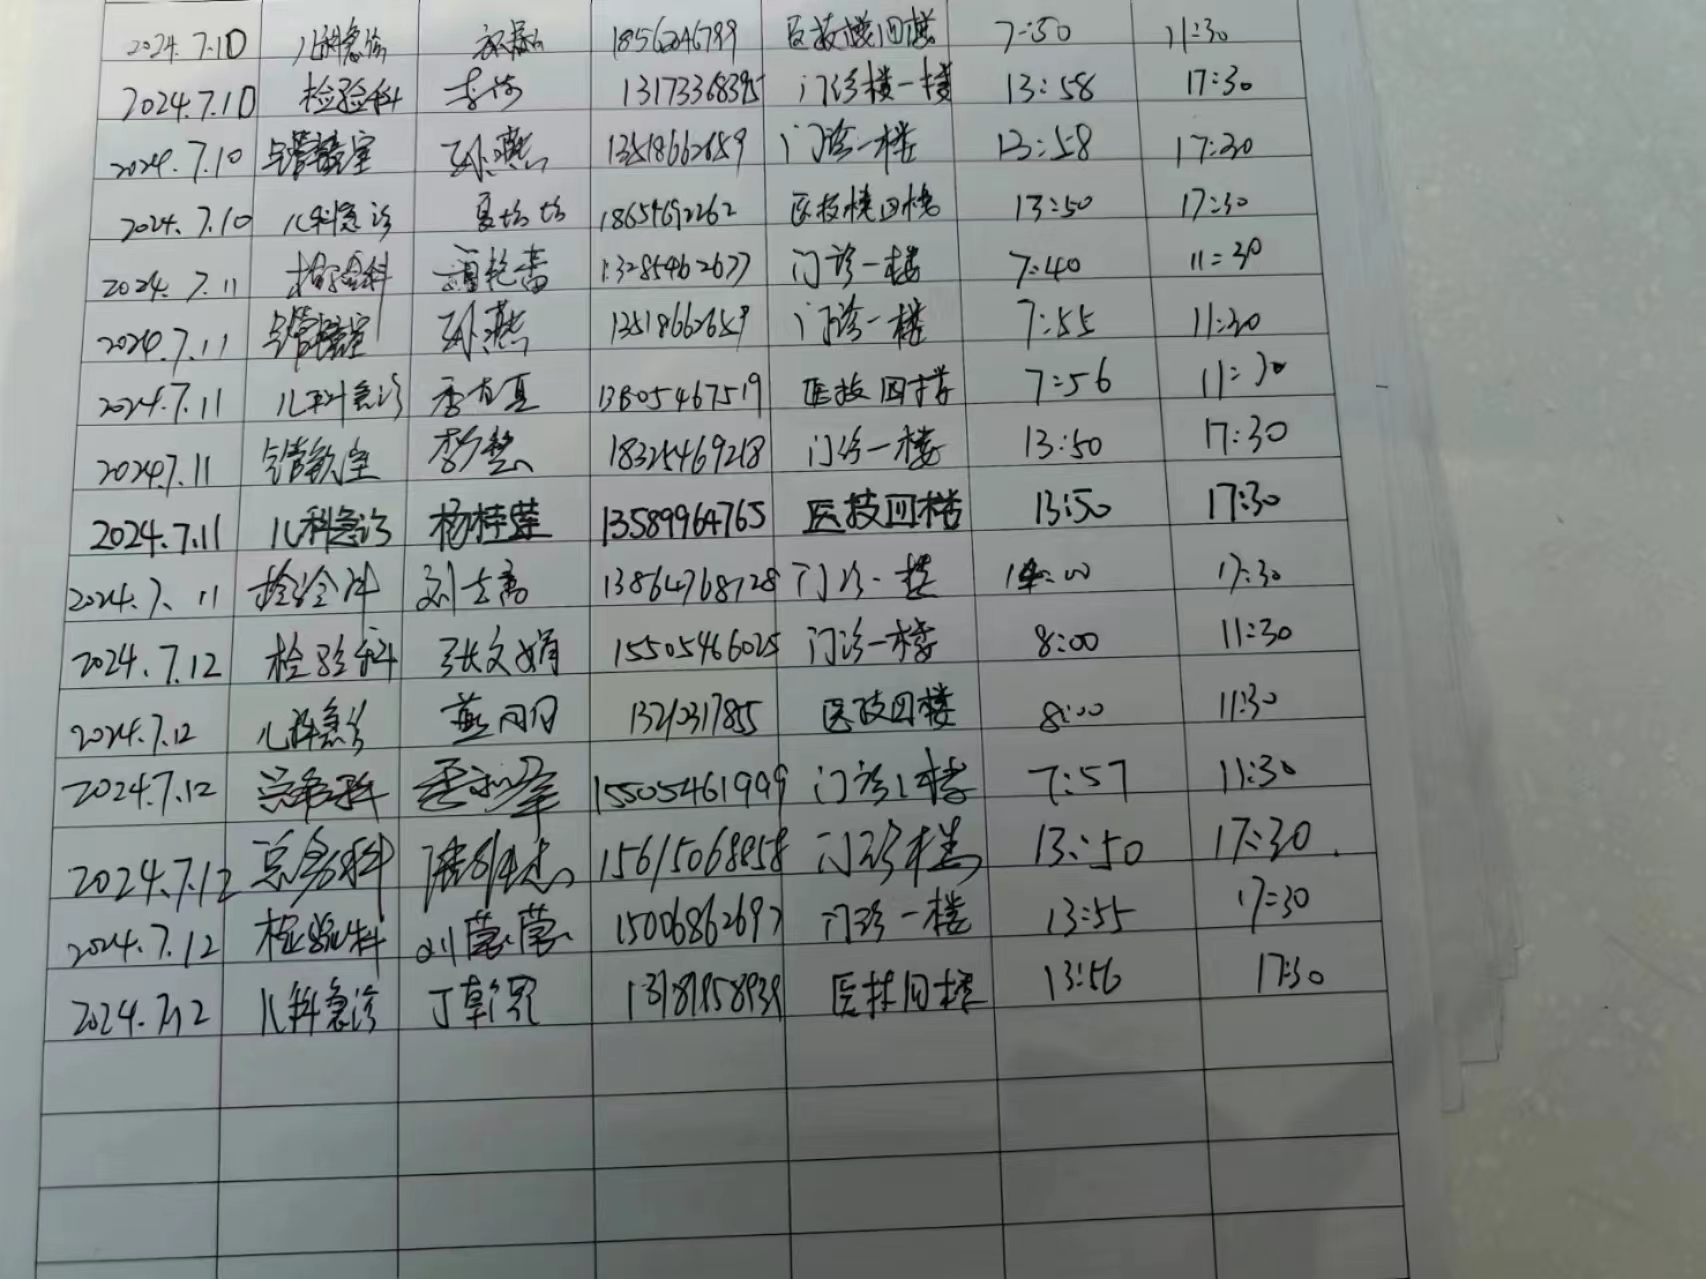 2024.7.10 儿科急诊 18562046799 医技楼四楼 7:50 11:30
2024.7.10 检验科 李 13173368395 门诊楼一楼 13:58 17:30
2024.7.10 孙燕 13518662659 门诊一楼 13:58 17:30
2024.7.10 儿科急诊 夏 18654692262 医技楼四楼 13:50 17:30
2024.7.11 检验科 13285462677 门诊一楼 7:40 11:30
2024.7.11 孙燕 13518662659 门诊一楼 7:55 11:30
2024.7.11 儿科急诊 13805467519 医技四楼 7:56 11:30
2024.7.11 李慧 18325469218 门诊一楼 13:50 17:30
2024.7.11 儿科急诊 杨桂莲 13589964765 医技四楼 13:50 17:30
2024.7.11 检验科 刘 13864768728 门诊一楼 14:00 17:30
2024.7.12 检验科 张文娟 15505466025 门诊一楼 8:00 11:30
2024.7.12 儿科急诊 燕 医技四楼 8:00 11:30
2024.7.12 15505461999 门诊1楼 7:57 11:30
2024.7.12 总务科 15615068858 门诊楼 13:50 17:30
2024.7.12 检验科 刘 15006862697 门诊一楼 13:55 17:30
2024.7.12 儿科急诊 丁 医技四楼 13:56 17:30